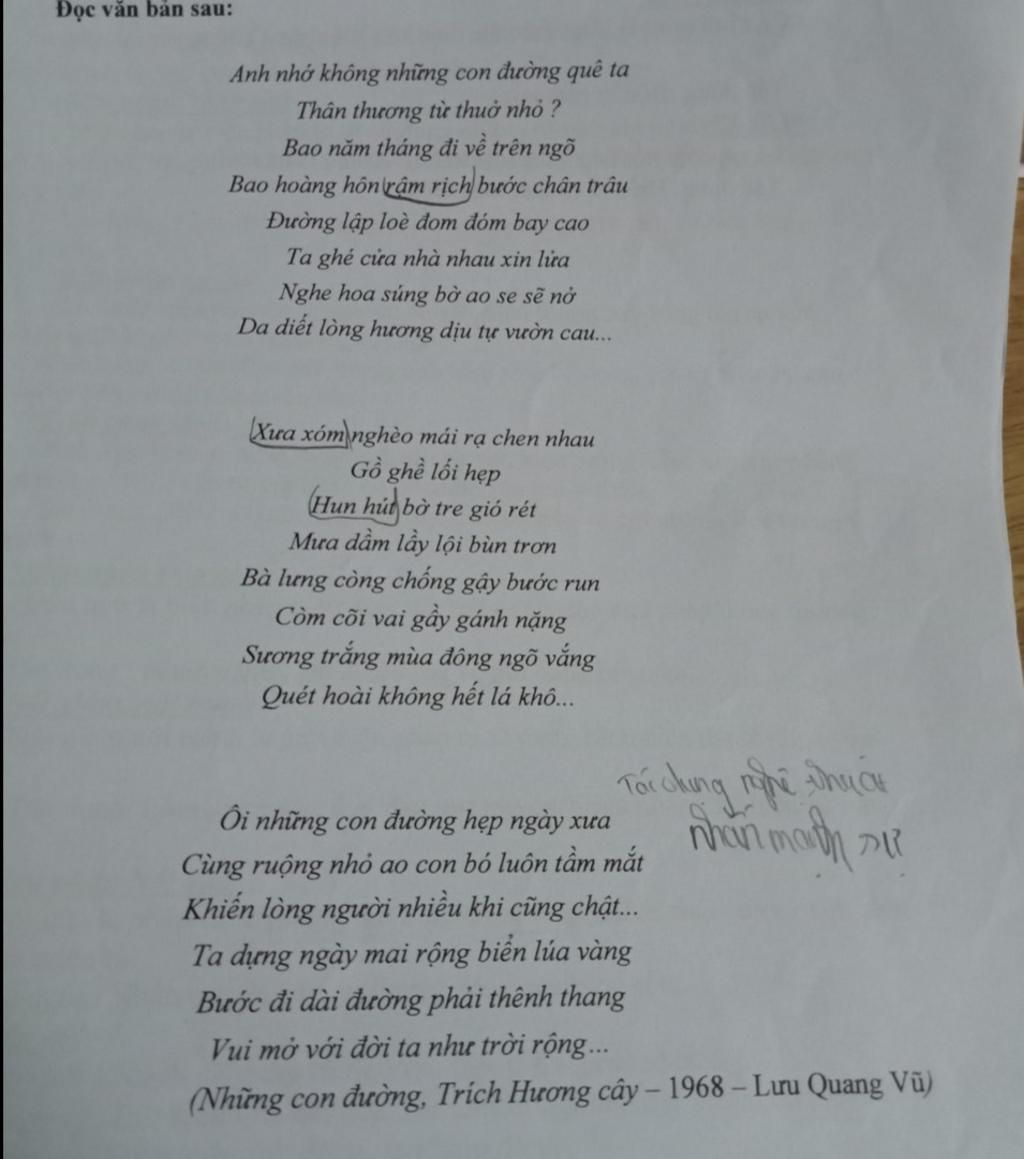 Đọc văn bản sau:
Anh nhớ không những con đường quê ta
Thân thương từ thuở nhỏ ?
Bao năm tháng đi về trên ngõ
Bao hoàng hôn rậm rịch bước chân trâu
Đường lập loè đom đóm bay cao
Ta ghé cửa nhà nhau xin lửa
Nghe hoa súng bờ ao se sẽ nở
Da diết lòng hương dịu tự vườn cau...
Xưa xóm nghèo mái rạ chen nhau
Gồ ghề lối hẹp
Hun hút bờ tre gió rét
Mưa dầm lầy lội bùn trơn
Bà lưng còng chống gậy bước run
Còm cõi vai gầy gánh nặng
Sương trắng mùa đông ngõ vắng
Quét hoài không hết lá khô...
Tác dụng nghệ thuật
nhấn mạnh sự
Ôi những con đường hẹp ngày xưa
Cùng ruộng nhỏ ao con bó luôn tầm mắt
Khiến lòng người nhiều khi cũng chật...
Ta dựng ngày mai rộng biển lúa vàng
Bước đi dài đường phải thênh thang
Vui mở với đời ta như trời rộng...
(Những con đường, Trích Hương cây – 1968 – Lưu Quang Vũ)